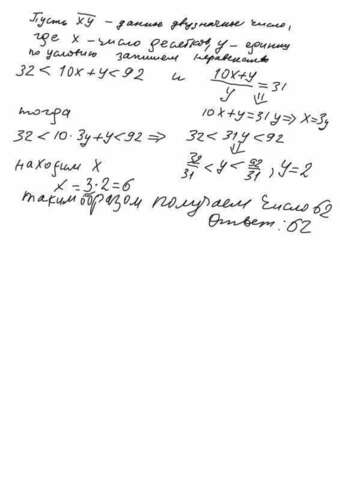 Пусть x̅y̅ - данное двузначное число,
где x - число десятков, y - единиц
по условию запишем неравенство
32 < 10x+y < 92 и (10x+y)/y = 31
⇓
тогда 10x+y=31y ⇒ x=3y
32 < 10·3y+y < 92 ⇒ 32 < 31y < 92
⇓
находим x 32/31 < y < 92/31, y=2
x = 3·2 = 6
таким образом получаем число 62
Ответ: 62